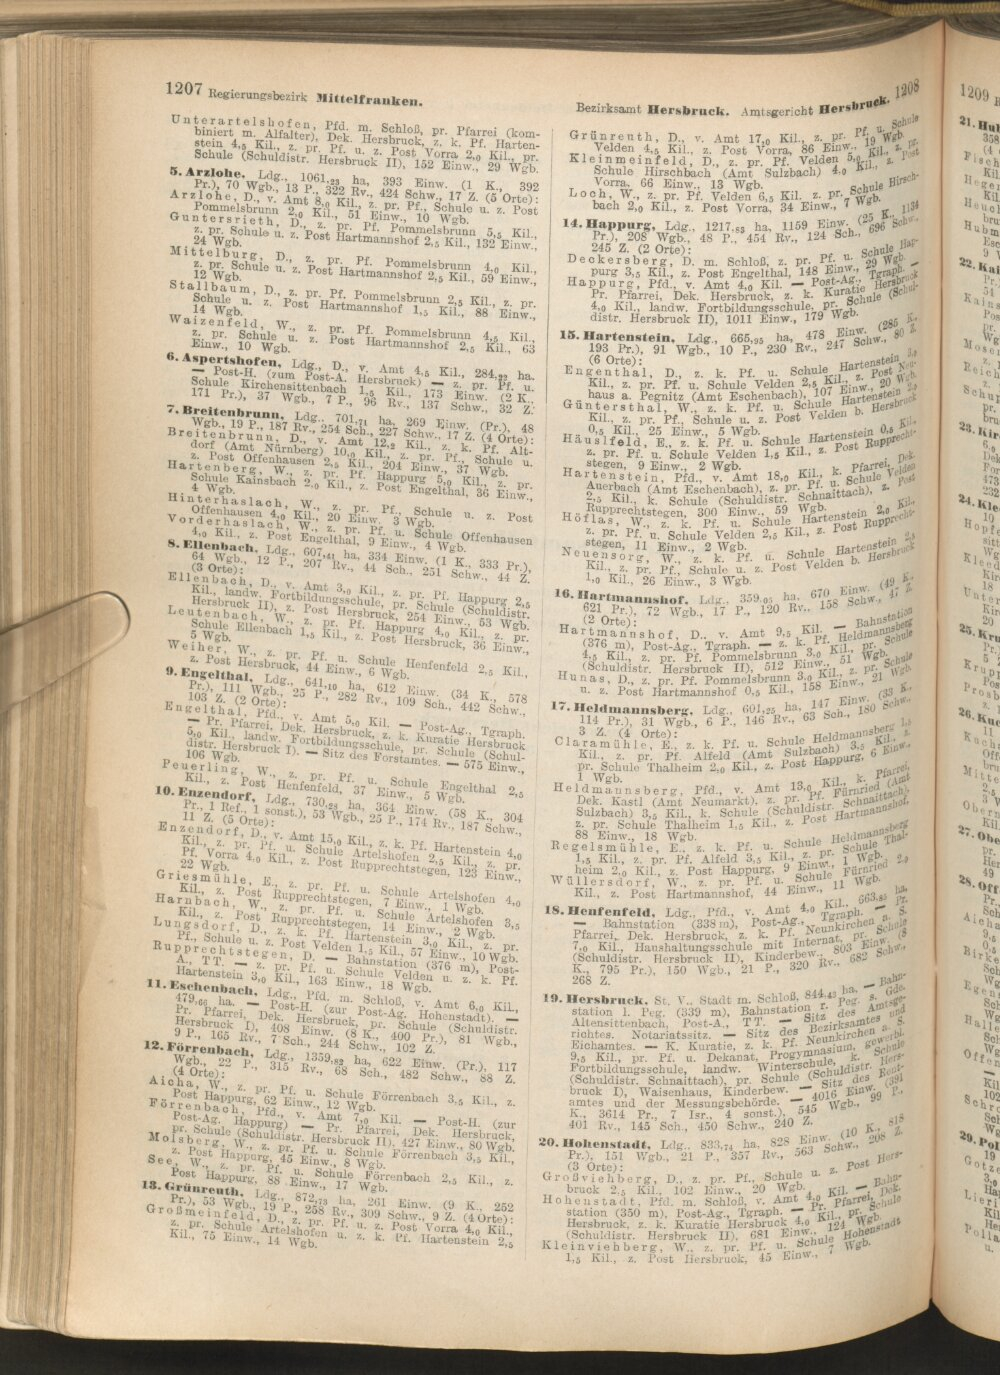 1207 Regierungsbezirk Mittelfranken.
Unterartelshofen, Pfd. m. Schloß, pr. Pfarrei (kom-
biniert m. Alfalter), Dek. Hersbruck, z. k. Pf. Harten-
stein 4,5 Kil., z. pr. Pf. u. z. Post Vorra 2,0 Kil., pr.
Schule (Schuldistr. Hersbruck II), 152 Einw., 29 Wgb.
5. Arzlohe, Ldg., 1061,23 ha, 393 Einw. (1 K., 392
Pr.), 70 Wgb., 13 P., 322 Rv., 424 Schw., 17 Z. (5 Orte):
Arzlohe, D., v. Amt 8,0 Kil., z. pr. Pf., Schule u. z. Post
Pommelsbrunn 2,0 Kil., 51 Einw., 10 Wgb.
Guntersrieth, D., z. pr. Pf. Pommelsbrunn 5,5 Kil.,
z. pr. Schule u. z. Post Hartmannshof 2,5 Kil., 132 Einw.,
24 Wgb.
Mittelburg, D., z. pr. Pf. Pommelsbrunn 4,0 Kil.,
z. pr. Schule u. z. Post Hartmannshof 2,5 Kil., 59 Einw.,
12 Wgb.
Stallbaum, D., z. pr. Pf. Pommelsbrunn 2,5 Kil., z. pr.
Schule u. z. Post Hartmannshof 1,5 Kil., 88 Einw.,
14 Wgb.
Waizenfeld, W., z. pr. Pf. Pommelsbrunn 4,5 Kil.,
z. pr. Schule u. z. Post Hartmannshof 2,5 Kil., 63
Einw., 10 Wgb.
6. Aspertshofen, Ldg., D., v. Amt 4,5 Kil., 284,22 ha.
— Post-H. (zum Post-A. Hersbruck) — z. pr. Pf. u.
Schule Kirchensittenbach 1,5 Kil., 173 Einw. (2 K.,
171 Pr.), 37 Wgb., 7 P., 96 Rv., 137 Schw., 32 Z.
7. Breitenbrunn, Ldg., 701,71 ha, 269 Einw. (Pr.), 48
Wgb., 19 P., 187 Rv., 254 Sch., 227 Schw., 17 Z. (4 Orte):
Breitenbrunn, D., v. Amt 12,2 Kil., z. k. Pf. Alt-
dorf (Amt Nürnberg) 10,0 Kil., z. pr. Pf., Schule u.
z. Post Offenhausen 2,5 Kil., 204 Einw., 37 Wgb.
Hartenberg, W., z. pr. Pf. Happurg 5,0 Kil., z. pr.
Schule Kainsbach 2,0 Kil., z. Post Engelthal, 36 Einw.,
4 Wgb.
Hinterhaslach, W., z. pr. Pf., Schule u. z. Post
Offenhausen 4,0 Kil., 20 Einw. 3 Wgb.
Vorderhaslach, W., z. pr. Pf. u. Schule Offenhausen
4,0 Kil., z. Post Engelthal, 9 Einw., 4 Wgb.
8. Ellenbach, Ldg., 607,41 ha, 334 Einw. (1 K., 333 Pr.),
64 Wgb., 12 P., 207 Rv., 44 Sch., 251 Schw., 44 Z.
(3 Orte):
Ellenbach, D., v. Amt 3,0 Kil., z. pr. Pf. Happurg 2,5
Kil., landw. Fortbildungsschule, pr. Schule (Schuldistr.
Hersbruck II), z. Post Hersbruck, 254 Einw., 53 Wgb.
Leutenbach, W., z. pr. Pf. Happurg 4,0 Kil., z. pr.
Schule Ellenbach 1,5 Kil., z. Post Hersbruck, 36 Einw.,
5 Wgb.
Weiher, W., z. pr. Pf. u. Schule Henfenfeld 2,5 Kil.,
z. Post Hersbruck, 44 Einw., 6 Wgb.
9. Engelthal, Ldg., 641,10 ha, 612 Einw. (34 K., 578
Pr.), 111 Wgb., 25 P., 282 Rv., 109 Sch., 442 Schw.,
103 Z. (2 Orte):
Engelthal, Pfd., v. Amt 5,0 Kil. — Post-Ag., Tgraph.
— Pr. Pfarrei, Dek. Hersbruck, z. k. Kuratie Hersbruck
5,0 Kil., landw. Fortbildungsschule, pr. Schule (Schul-
distr. Hersbruck I). — Sitz des Forstamtes. — 575 Einw.,
106 Wgb.
Peuerling, W., z. pr. Pf. u. Schule Engelthal 2,5
Kil., z. Post Henfenfeld, 37 Einw., 5 Wgb.
10. Enzendorf, Ldg., 730,23 ha, 364 Einw. (58 K., 304
Pr., 1 Ref., 1 sonst.), 53 Wgb., 25 P., 174 Rv., 187 Schw.,
11 Z. (5 Orte):
Enzendorf, D., v. Amt 15,0 Kil., z. k. Pf. Hartenstein 4,0
Kil., z. pr. Pf. u. Schule Artelshofen 2,5 Kil., z. pr.
Pf. Vorra 4,0 Kil., z. Post Rupprechtstegen, 123 Einw.,
22 Wgb.
Griesmühle, E., z. pr. Pf. u. Schule Artelshofen 4,0
Kil., z. Post Rupprechtstegen, 7 Einw., 1 Wgb.
Harnbach, W., z. pr. Pf. u. Schule Artelshofen 3,5
Kil., z. Post Rupprechtstegen, 14 Einw., 2 Wgb.
Lungsdorf, D., z. k. Pf. Hartenstein 3,0 Kil., z. pr.
Pf., Schule u. z. Post Velden 1,5 Kil., 57 Einw., 10 Wgb.
Rupprechtstegen, D. — Bahnstation (376 m), Post-
A., TT. — z. pr. Pf. u. Schule Velden u. z. k. Pf.
Hartenstein 3,0 Kil., 163 Einw., 18 Wgb.
11. Eschenbach, Ldg., Pfd. m. Schloß, v. Amt 6,0 Kil.,
479,66 ha. — Post-H. (zur Post-Ag. Hohenstadt). —
Pr. Pfarrei, Dek. Hersbruck, pr. Schule (Schuldistr.
Hersbruck I), 408 Einw. (8 K., 400 Pr.), 81 Wgb.,
9 P., 165 Rv., 7 Sch., 244 Schw., 102 Z.
12. Förrenbach, Ldg., 1359,82 ha, 622 Einw. (Pr.), 117
Wgb., 22 P., 315 Rv., 68 Sch., 482 Schw., 88 Z.
(4 Orte):
Aicha, W., z. pr. Pf. u. Schule Förrenbach 3,5 Kil., z.
Post Happurg, 62 Einw., 12 Wgb.
Förrenbach, Pfd., v. Amt 7,0 Kil. — Post-H. (zur
Post-Ag. Happurg) — Pr. Pfarrei, Dek. Hersbruck,
pr. Schule (Schuldistr. Hersbruck II), 427 Einw., 80 Wgb.
Molsberg, W., z. pr. Pf. u. Schule Förrenbach 3,5 Kil.,
z. Post Happurg, 45 Einw., 8 Wgb.
See, W., z. pr. Pf. u. Schule Förrenbach 2,5 Kil., z.
Post Happurg, 88 Einw., 17 Wgb.
13. Grünreuth, Ldg., 872,73 ha, 261 Einw. (9 K., 252
Pr.), 53 Wgb., 19 P., 258 Rv., 309 Schw., 9 Z. (4 Orte):
Großmeinfeld, D., z. pr. Pf. u. z. Post Vorra 4,0 Kil.,
z. pr. Schule Artelshofen u. z. k. Pf. Hartenstein 2,5
Kil., 75 Einw., 14 Wgb.
Bezirksamt Hersbruck. Amtsgericht Hersbruck. 1208
Grünreuth, D., v. Amt 17,0 Kil., z. pr. Pf. u. Schule
Velden 4,5 Kil., z. Post Vorra, 86 Einw., 19 Wgb.
Kleinmeinfeld, D., z. pr. Pf. Velden 5,0 Kil., z. pr.
Schule Hirschbach (Amt Sulzbach) 4,0 Kil., z. Post
Vorra, 66 Einw., 13 Wgb.
Loch, W., z. pr. Pf. Velden 6,5 Kil. z. pr. Schule Hirsch-
bach 2,0 Kil., z. Post Vorra, 34 Einw., 7 Wgb.
14. Happurg, Ldg., 1217,83 ha, 1159 Einw. (25 K., 1134
Pr.), 208 Wgb., 48 P., 454 Rv., 124 Sch., 696 Schw.,
245 Z. (2 Orte):
Deckersberg, D. m. Schloß, z. pr. Pf. u. Schule Hap-
purg 3,5 Kil., z. Post Engelthal, 148 Einw., 29 Wgb.
Happurg, Pfd., v. Amt 4,0 Kil. — Post-Ag., Tgraph. —
Pr. Pfarrei, Dek. Hersbruck, z. k. Kuratie Hersbruck
4,0 Kil., landw. Fortbildungsschule, pr. Schule (Schul-
distr. Hersbruck II), 1011 Einw., 179 Wgb.
15. Hartenstein, Ldg., 665,95 ha, 478 Einw. (285 K.,
193 Pr.), 91 Wgb., 10 P., 230 Rv., 247 Schw., 80 Z.
(6 Orte):
Engenthal, D., z. k. Pf. u. Schule Hartenstein 3,0
Kil., z. pr. Pf. u. Schule Velden 2,5 Kil., z. Post Neu-
haus a. Pegnitz (Amt Eschenbach), 107 Einw., 20 Wgb.
Güntersthal, W., z. k. Pf. u. Schule Hartenstein 2,0
Kil., z. pr. Pf., Schule u. z. Post Velden b. Hersbruck
0,5 Kil., 25 Einw., 5 Wgb.
Häuslfeld, E., z. k. Pf. u. Schule Hartenstein 0,5 Kil.,
z. pr. Pf. u. Schule Velden 1,5 Kil., z. Post Rupprecht-
stegen, 9 Einw., 2 Wgb.
Hartenstein, Pfd., v. Amt 18,0 Kil., k. Pfarrei, Dek.
Auerbach (Amt Eschenbach), z. pr. Pf. u. Schule Velden
2,5 Kil., k. Schule (Schuldistr. Schnaittach), z. Post
Rupprechtstegen, 300 Einw., 59 Wgb.
Höflas, W., z. k. Pf. u. Schule Hartenstein 2,0 Kil.,
z. pr. Pf. u. Schule Velden 2,5 Kil., z. Post Rupprecht-
stegen, 11 Einw., 2 Wgb.
Neuensorg, W., z. k. Pf. u. Schule Hartenstein 2,5
Kil., z. pr. Pf., Schule u. z. Post Velden b. Hersbruck
1,0 Kil., 26 Einw., 3 Wgb.
16. Hartmannshof. Ldg., 359,05 ha, 670 Einw. (49 K.,
621 Pr.), 72 Wgb., 17 P., 120 Rv., 158 Schw., 47 Z.
(2 Orte):
Hartmannshof, D., v. Amt 9,5 Kil. — Bahnstation
(376 m), Post-Ag., Tgraph. — z. k. Pf. Heldmannsberg
4,5 Kil., z. pr. Pf. Pommelsbrunn 3,0 Kil., pr. Schule
(Schuldistr. Hersbruck II), 512 Einw., 51 Wgb.
Hunas, D., z. pr. Pf. Pommelsbrunn 3,0 Kil., z. pr. Schule
u. z. Post Hartmannshof 0,5 Kil., 158 Einw., 21 Wgb.
17. Heldmannsberg, Ldg., 601,25 ha, 147 Einw. (33 K.,
114 Pr.), 31 Wgb., 6 P., 146 Rv., 63 Sch., 180 Schw.,
3 Z. (4 Orte):
Claramühle, E., z. k. Pf. u. Schule Heldmannsberg 1,5
Kil., z. pr. Pf. Alfeld (Amt Sulzbach) 3,5 Kil., z.
pr. Schule Thalheim 2,0 Kil., z. Post Happurg, 6 Einw.,
1 Wgb.
Heldmannsberg, Pfd., v. Amt 13,0 Kil., k. Pfarrei,
Dek. Kastl (Amt Neumarkt), z. pr. Pf. Fürnried (Amt
Sulzbach) 3,5 Kil., k. Schule (Schuldistr. Schnaittach),
z. pr. Schule Thalheim 1,5 Kil., z. Post Hartmannshof,
88 Einw., 18 Wgb.
Regelsmühle, E., z. k. Pf. u. Schule Heldmannsberg
1,5 Kil., z. pr. Pf. Alfeld 3,5 Kil., z. pr. Schule Thal-
heim 2,0 Kil., z. Post Happurg, 9 Einw., 1 Wgb.
Wüllersdorf, W., z. pr. Pf. u. Schule Fürnried 2,0
Kil., z. Post Hartmannshof, 44 Einw., 11 Wgb.
18. Henfenfeld, Ldg., Pfd., v. Amt 4,0 Kil., 663,95 ha,
— Bahnstation (338 m), Post-Ag., Tgraph. — Pr.
Pfarrei, Dek. Hersbruck, z. k. Pf. Neunkirchen a. S.
7,0 Kil., Haushaltungsschule mit Internat, pr. Schule
(Schuldistr. Hersbruck II), Kinderbew., 803 Einw. (8
K., 795 Pr.), 150 Wgb., 21 P., 320 Rv., 682 Schw.,
268 Z.
19. Hersbruck, St. V., Stadt m. Schloß, 844,43 ha, — Bahn-
station l. Peg. (339 m), Bahnstation r. Peg. s. Gde.
Altensittenbach, Post-A., TT. — Sitz des Amtsge-
richtes. Notariatssitz. — Sitz des Bezirksamtes und
Eichamtes. — K. Kuratie, z. k. Pf. Neunkirchen a. S.
9,5 Kil., pr. Pf. u. Dekanat, Progymnasium, gewerbl.
Fortbildungsschule, landw. Winterschule, k. Schule
(Schuldistr. Schnaittach), pr. Schule (Schuldistr. Hers-
bruck I), Waisenhaus, Kinderbew. — Sitz des Rent-
amtes und der Messungsbehörde. — 4016 Einw. (391
K., 3614 Pr., 7 Isr., 4 sonst.), 545 Wgb., 99 P.,
401 Rv., 145 Sch., 450 Schw., 240 Z.
20. Hohenstadt, Ldg., 833,74 ha, 828 Einw. (10 K., 818
Pr.), 151 Wgb., 21 P., 357 Rv., 563 Schw., 208 Z.
(3 Orte):
Großviehberg, D., z. pr. Pf., Schule u. z. Post Hers-
bruck 2,5 Kil., 102 Einw., 20 Wgb.
Hohenstadt, Pfd. m. Schloß, v. Amt 4,0 Kil. — Bahn-
station (350 m), Post-Ag., Tgraph. — Pr. Pfarrei, Dek.
Hersbruck, z. k. Kuratie Hersbruck 4,0 Kil., pr. Schule
(Schuldistr. Hersbruck II), 681 Einw., 124 Wgb.
Kleinviehberg, W., z. pr. Pf. u. Schule Hohenstadt
1,5 Kil., z. Post Hersbruck, 45 Einw., 7 Wgb.
1209